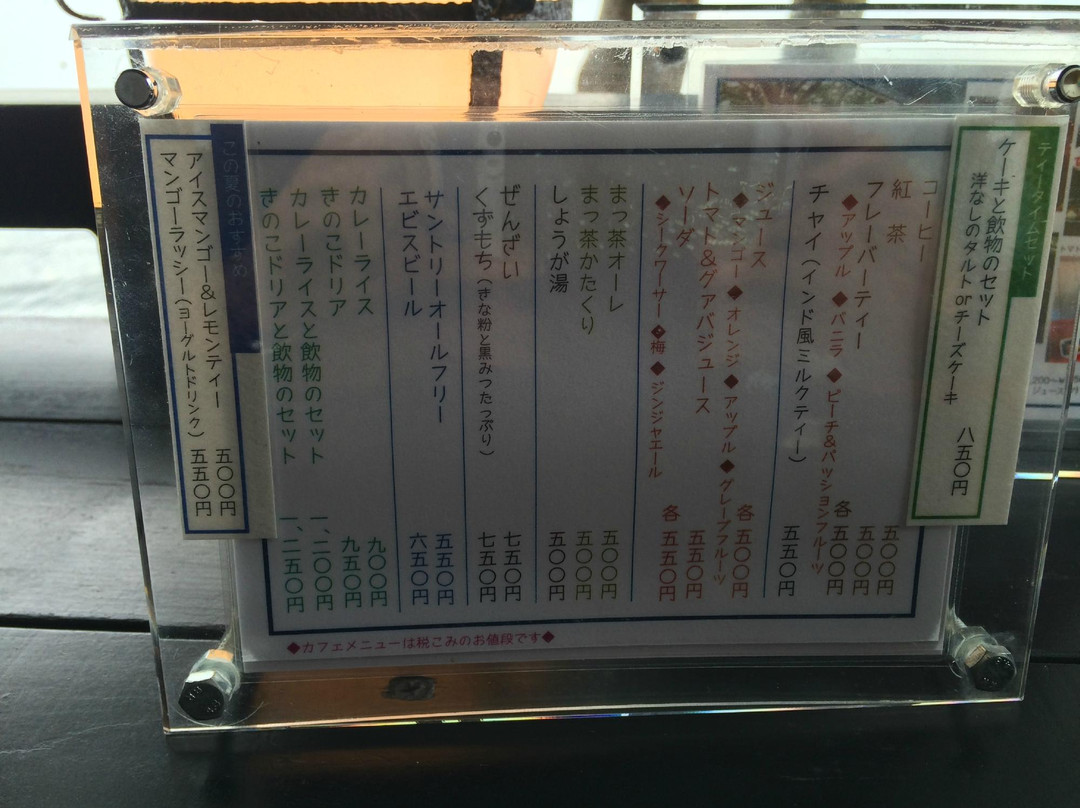 ティータイムセット
ケーキと飲物のセット
洋なしのタルト or チーズケーキ 八五〇円
コーヒー 五〇〇円
紅茶 五五〇円
フレーバーティー 各五〇〇円
◆アップル ◆バニラ ◆ピーチ&パッションフルーツ
チャイ(インド風ミルクティー) 五五〇円
ジュース 各五〇〇円
◆マンゴー◆オレンジ◆アップル◆グレープフルーツ
トマト&グァバジュース 五五〇円
ソーダ 各五五〇円
◆シークワーサー◆梅◆ジンジャエール
まっ茶オーレ 五五〇円
まっ茶かたくり 五〇〇円
しょうが湯 五〇〇円
ぜんざい 七五〇円
くずもち(きな粉と黒みつたっぷり) 七五〇円
サントリーオールフリー 五五〇円
エビスビール 六五〇円
カレーライス 九〇〇円
きのこドリア 九五〇円
カレーライスと飲物のセット 一、二〇〇円
きのこドリアと飲物のセット 一、二五〇円
この夏のおすすめ
アイスマンゴー&レモンティー 五〇〇円
マンゴーラッシー(ヨーグルトドリンク) 五五〇円
◆カフェメニューは税こみのお値段です◆